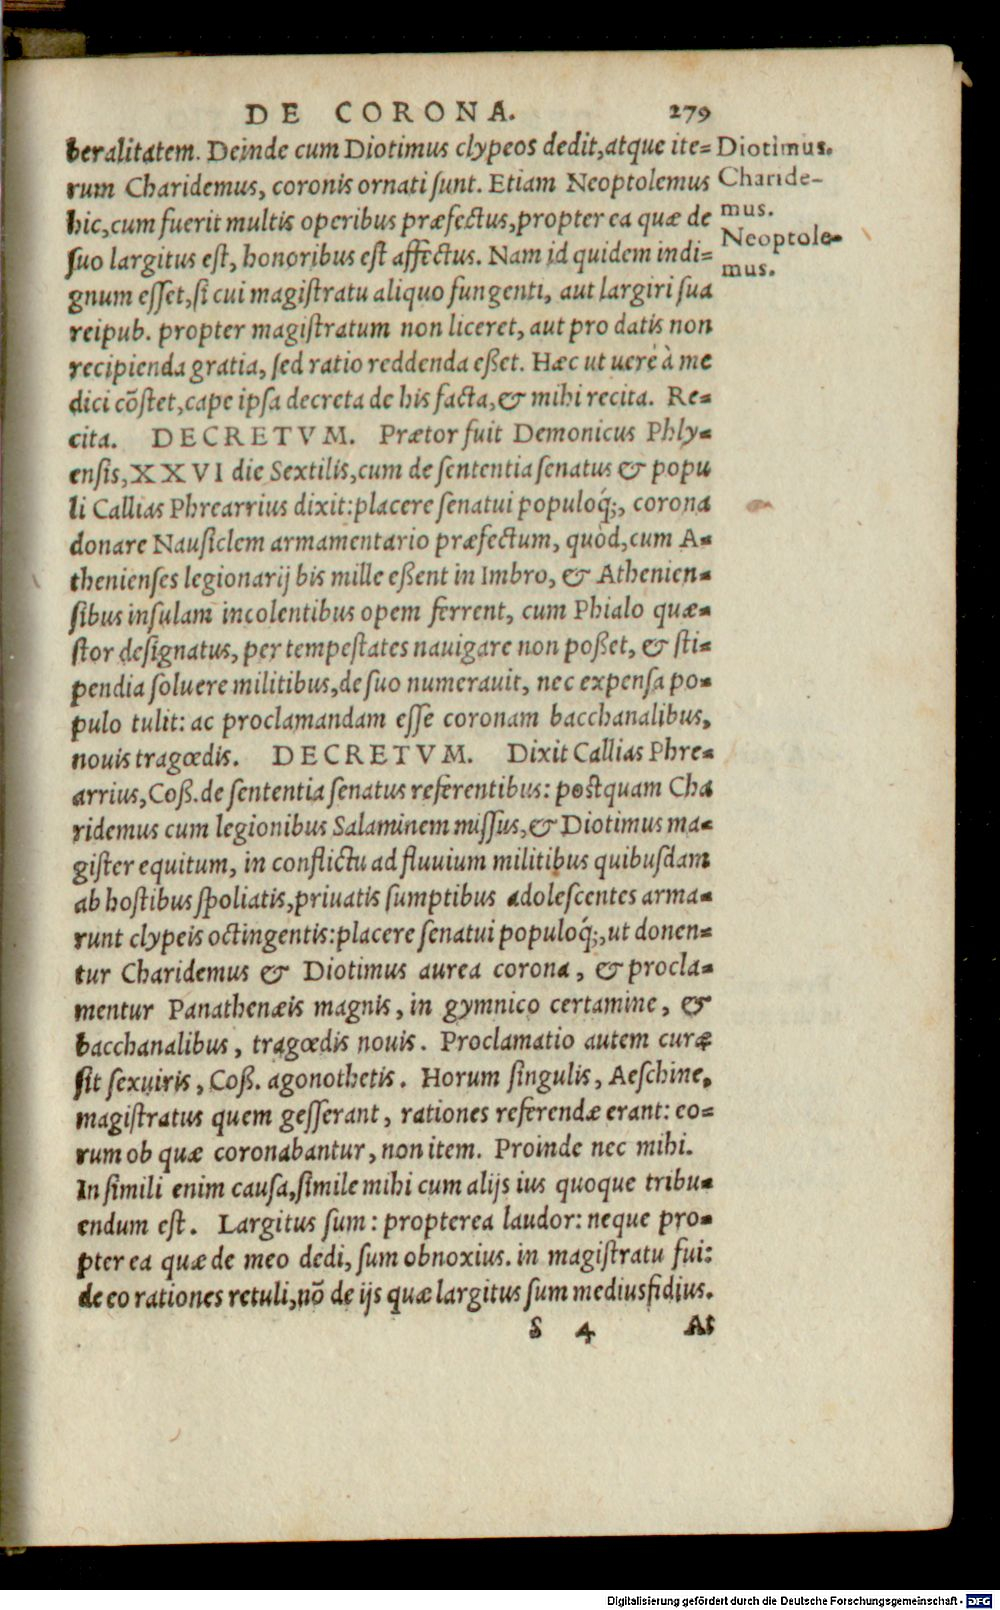 DE CORONA. 279
beralitatem. Deinde cum Diotimus clypeos dedit, atque ite=
rum Charidemus, coronis ornati sunt. Etiam Neoptolemus
hic, cum fuerit multis operibus præfectus, propter ea quæ de
suo largitus est, honoribus est affectus. Nam id quidem indi=
gnum esset, si cui magistratu aliquo fungenti, aut largiri sua
reipub. propter magistratum non liceret, aut pro datis non
recipienda gratia, sed ratio reddenda eßet. Hæc ut uerè à me
dici cõstet, cape ipsa decreta de his facta, & mihi recita. Re=
cita. DECRETVM. Prætor fuit Demonicus Phly=
ensis, XXVI die Sextilis, cum de sententia senatus & popu
li Callias Phrearrius dixit: placere senatui populoq́;, corona
donare Nausiclem armamentario præfectum, quòd, cum A=
thenienses legionarij bis mille eßent in Imbro, & Athenien=
sibus insulam incolentibus opem ferrent, cum Phialo quæ=
stor designatus, per tempestates nauigare non poßet, & sti=
pendia soluere militibus, de suo numerauit, nec expensa po=
pulo tulit: ac proclamandam esse coronam bacchanalibus,
nouis tragœdis. DECRETVM. Dixit Callias Phre=
arrius, Coß. de sententia senatus referentibus: postquam Cha
ridemus cum legionibus Salaminem missus, & Diotimus ma=
gister equitum, in conflictu ad fluuium militibus quibusdam
ab hostibus spoliatis, priuatis sumptibus adolescentes arma=
runt clypeis octingentis: placere senatui populoq́;, ut donen=
tur Charidemus & Diotimus aurea corona, & procla=
mentur Panathenæis magnis, in gymnico certamine, &
bacchanalibus, tragœdis nouis. Proclamatio autem curæ
sit sexuiris, Coß. agonothetis. Horum singulis, Aeschine,
magistratus quem gesserant, rationes referendæ erant: eo=
rum ob quæ coronabantur, non item. Proinde nec mihi.
In simili enim causa, simile mihi cum alijs ius quoque tribu=
endum est. Largitus sum: propterea laudor: neque pro=
pter ea quæ de meo dedi, sum obnoxius. in magistratu fui:
de eo rationes retuli, nõ de ijs quæ largitus sum mediusfidius.
S 4 At
Diotimus.
Charide-
mus.
Neoptole=
mus.
Digitalisierung gefördert durch die Deutsche Forschungsgemeinschaft - DFG